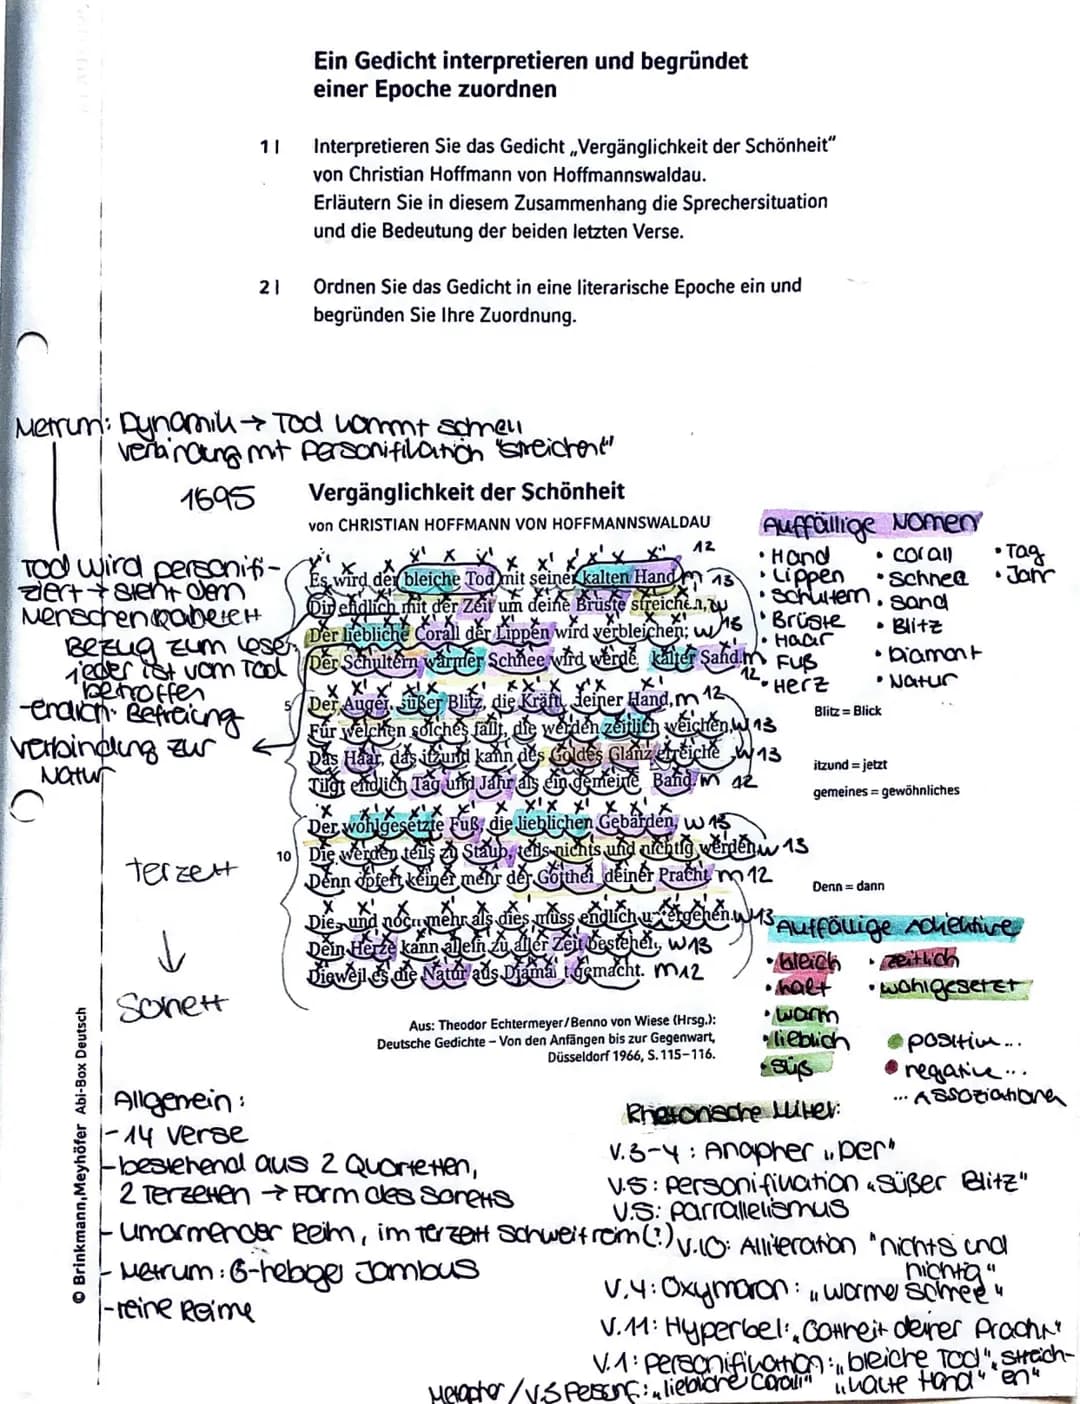 Ein Gedicht interpretieren und begründet
einer Epoche zuordnen
1 | Interpretieren Sie das Gedicht „Vergänglichkeit der Schönheit"
von Christian Hoffmann von Hoffmannswaldau.
Erläutern Sie in diesem Zusammenhang die Sprechersituation
und die Bedeutung der beiden letzten Verse.
2 | Ordnen Sie das Gedicht in eine literarische Epoche ein und
begründen Sie Ihre Zuordnung.
Metrum: Dynamik → Tod kommt schnell
Verbindung mit Personifikation "streichen"
1695
Vergänglichkeit der Schönheit
von CHRISTIAN HOFFMANN VON HOFFMANNSWALDAU
Es wird der bleiche Tod mit seiner kalten Hand m 12
Dir endlich mit der Zeit um deine Brüste streichen, w 13
Der liebliche Corall der Lippen wird verbleichen; w 13
Der Schultern warmer Schnee wird werden kalter Sand. m 12
5 Der Augen süßer Blitz, die Kräfte deiner Hand, m 12
Für welchen solches fällt, die werden zeitlich weichen, w 13
Das Haar, das itzund kann des Goldes Glanz erreichen, w 13
Tilgt endlich Tag und Jahr als ein gemeines Band. m 12
Der wohlgesetzte Fuß, die lieblichen Gebärden, w 13
10 Die werden teils zu Staub, teils nichts und nichtig werden, w 13
Denn opfert keiner mehr der Gottheit deiner Pracht. m 12
Dies und noch mehr als dies muss endlich untergehen. w 13
Dein Herze kann allein zu aller Zeit bestehen, w 13
Dieweil es die Natur aus Diamant gemacht. m 12
Aus: Theodor Echtermeyer/Benno von Wiese (Hrsg.):
Deutsche Gedichte – Von den Anfängen bis zur Gegenwart,
Düsseldorf 1966, S. 115–116.
Tod wird personifi-
ziert → steht dem
Menschen
Bezug zum Leser,
jeder ist vom Tod
betroffen
-endlich: Befreiung
Verbindung zur
Natur
Terzett
↓
Sonett
Auffällige Nomen
• Hand • Corall • Tag
• Lippen • Schnee • Jahr
• Schultern • Sand
• Brüste • Blitz
• Haar • Diamant
• Fuß • Natur
• Herz
Blitz = Blick
itzund = jetzt
gemeines = gewöhnliches
Denn = dann
Auffällige Adjektive
• bleich • zeitlich
• kalt • wohlgesetzt
• warm
• lieblich
• süß
positive...
negative...
... Assoziationen
© Brinkmann, Meyhöfer Abi-Box Deutsch
Allgemein:
- 14 Verse
- bestehend aus 2 Quartetten,
2 Terzetten → Form des Sonetts
- umarmender Reim, im Terzett Schweifreim (?)
- Metrum: 6-hebiger Jambus
- reine Reime
Rhetorische Mittel:
V.3-4: Anapher „Der"
V.5: Personifikation „süßer Blitz"
V.5: Parrallelismus
V.10: Alliteration "nichts und
nichtig"
V.4: Oxymoron: „warmer Schnee"
V.11: Hyperbel: „Gottheit deiner Pracht"
V.1: Personifikation: „bleiche Tod", „streich-
en"
„kalte Hand"
Metapher / V.3 Person.: „liebliche Corall"